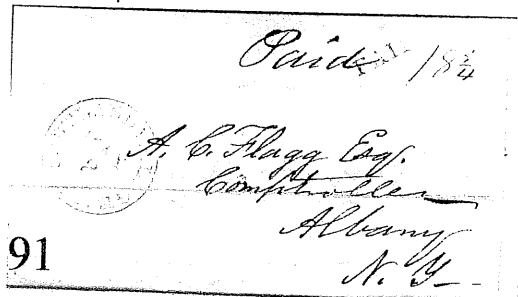 Paid 18 3/4
A. C. Flagg Esq.
Comptroller
Albany
N. Y.
91